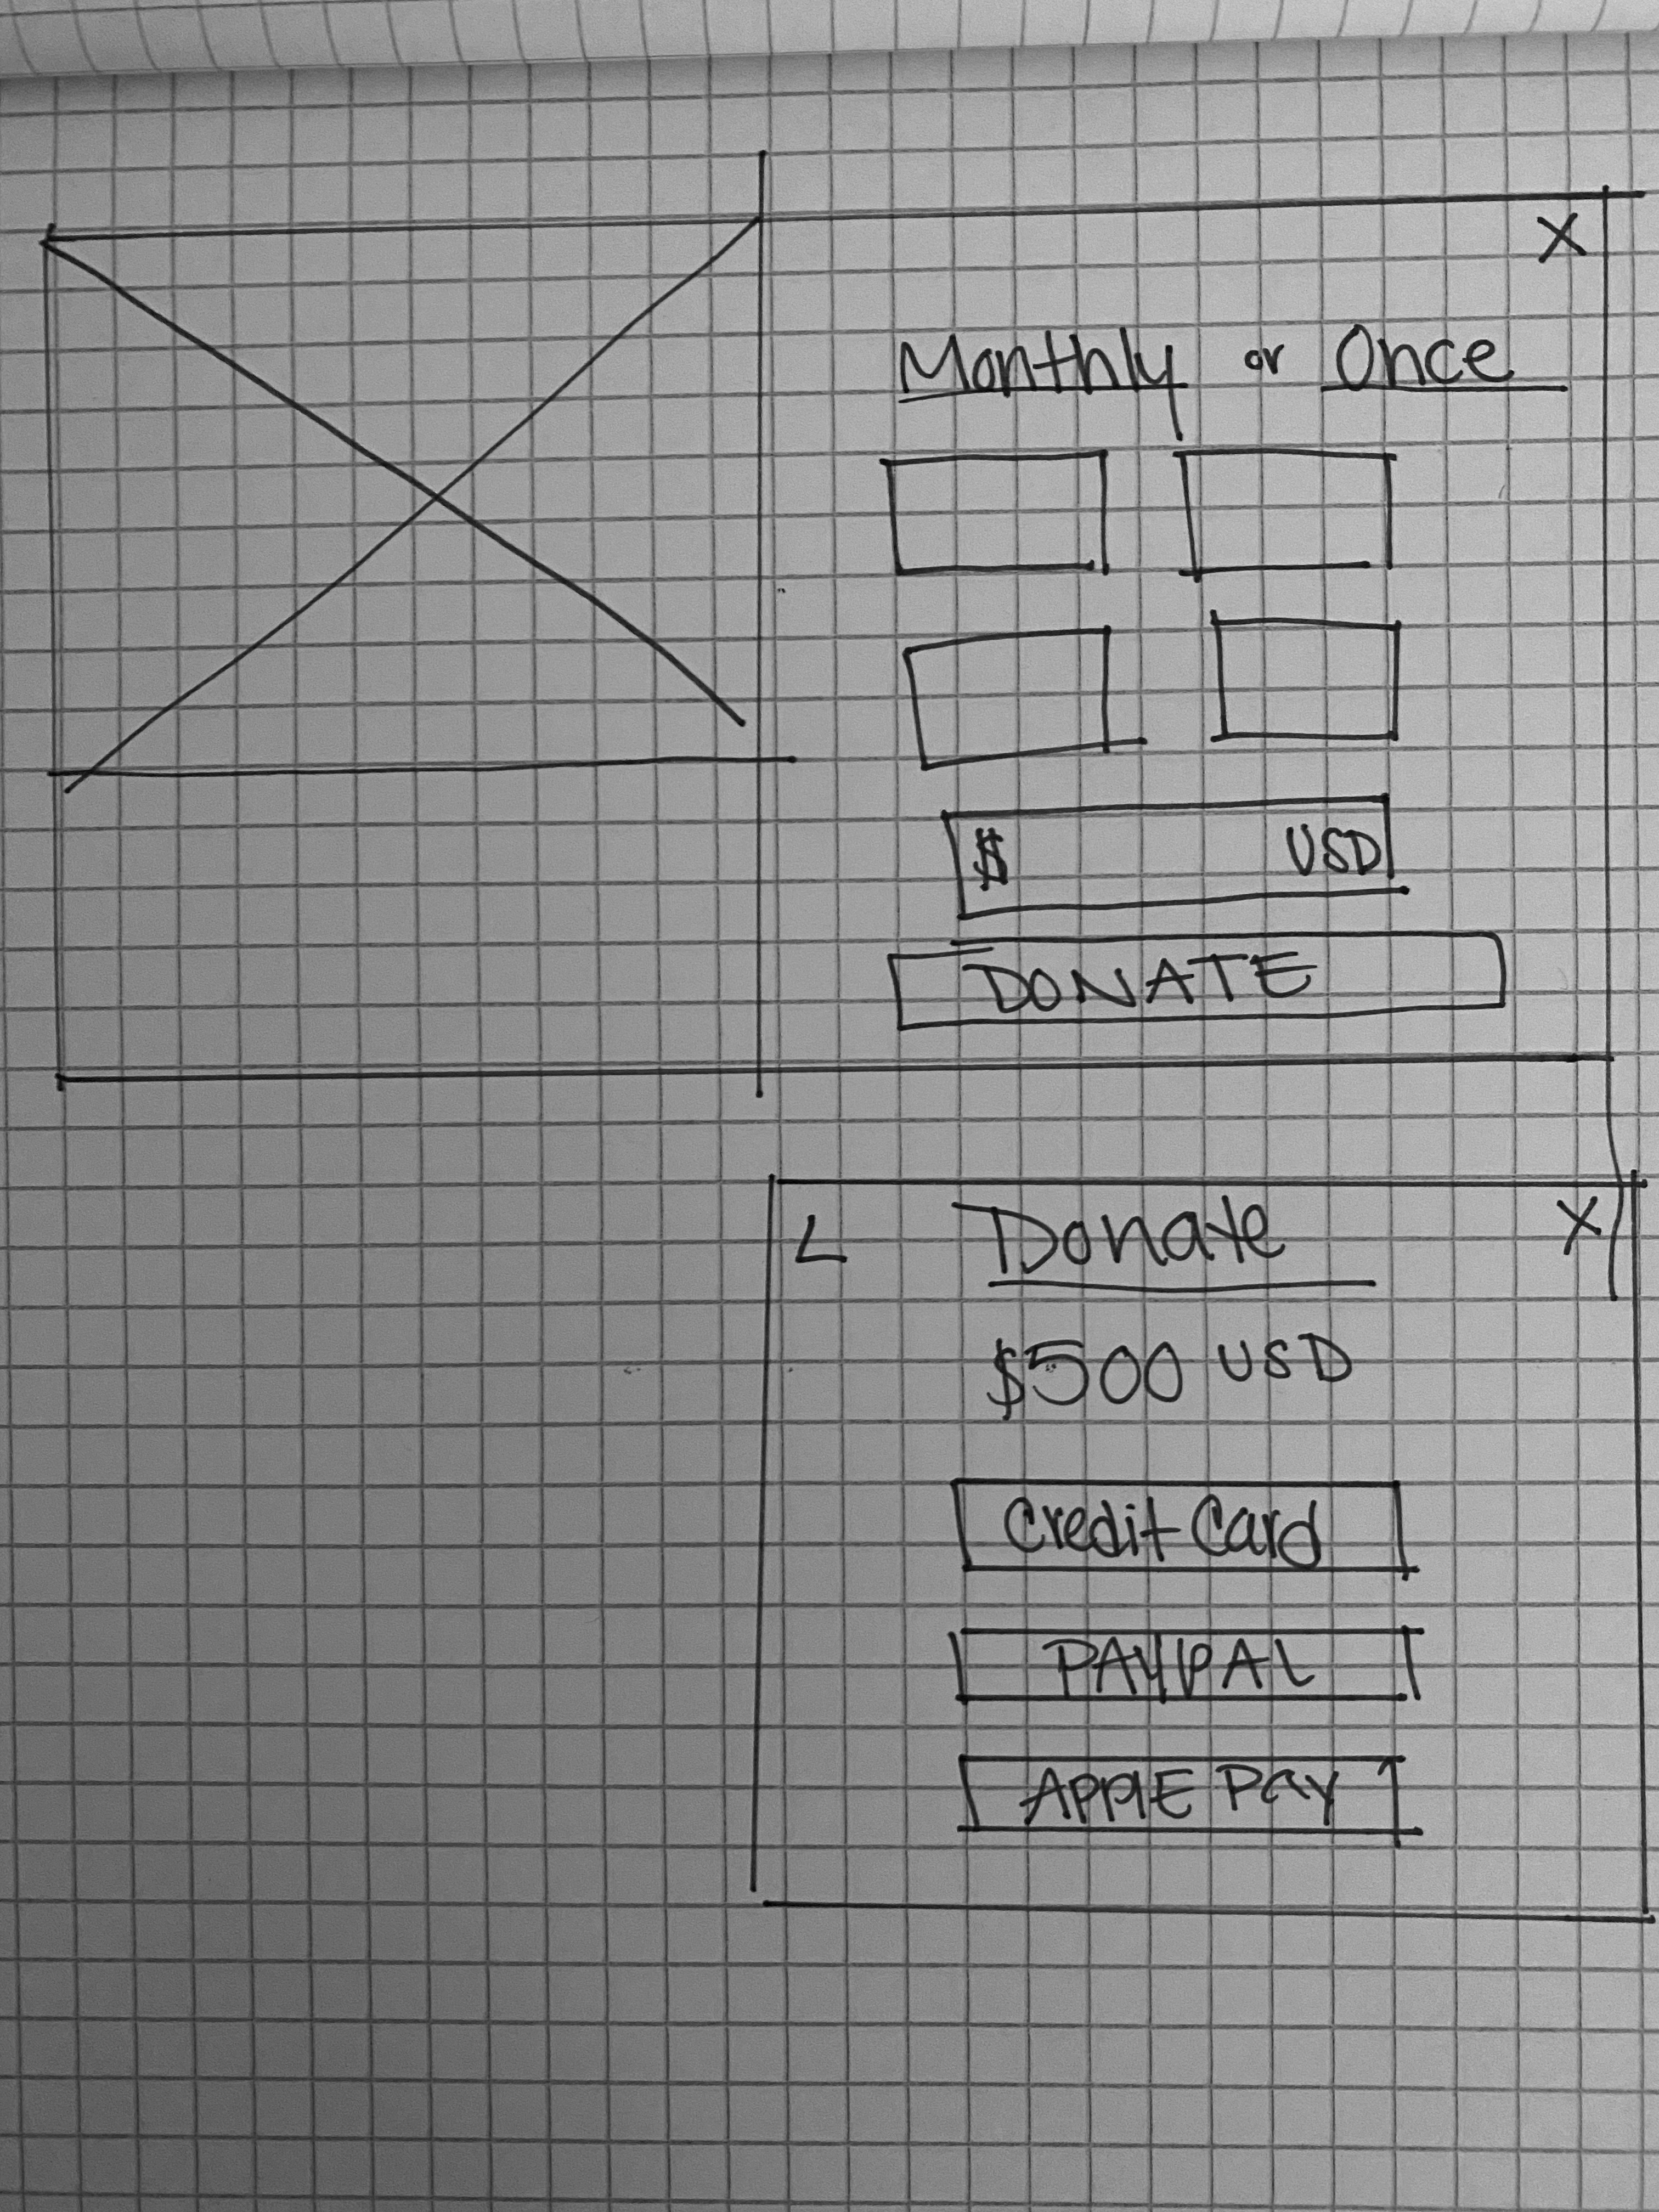 X
Monthly or Once
$ USD
DONATE
< Donate X
$500 USD
Credit Card
PAYPAL
APPLE PAY